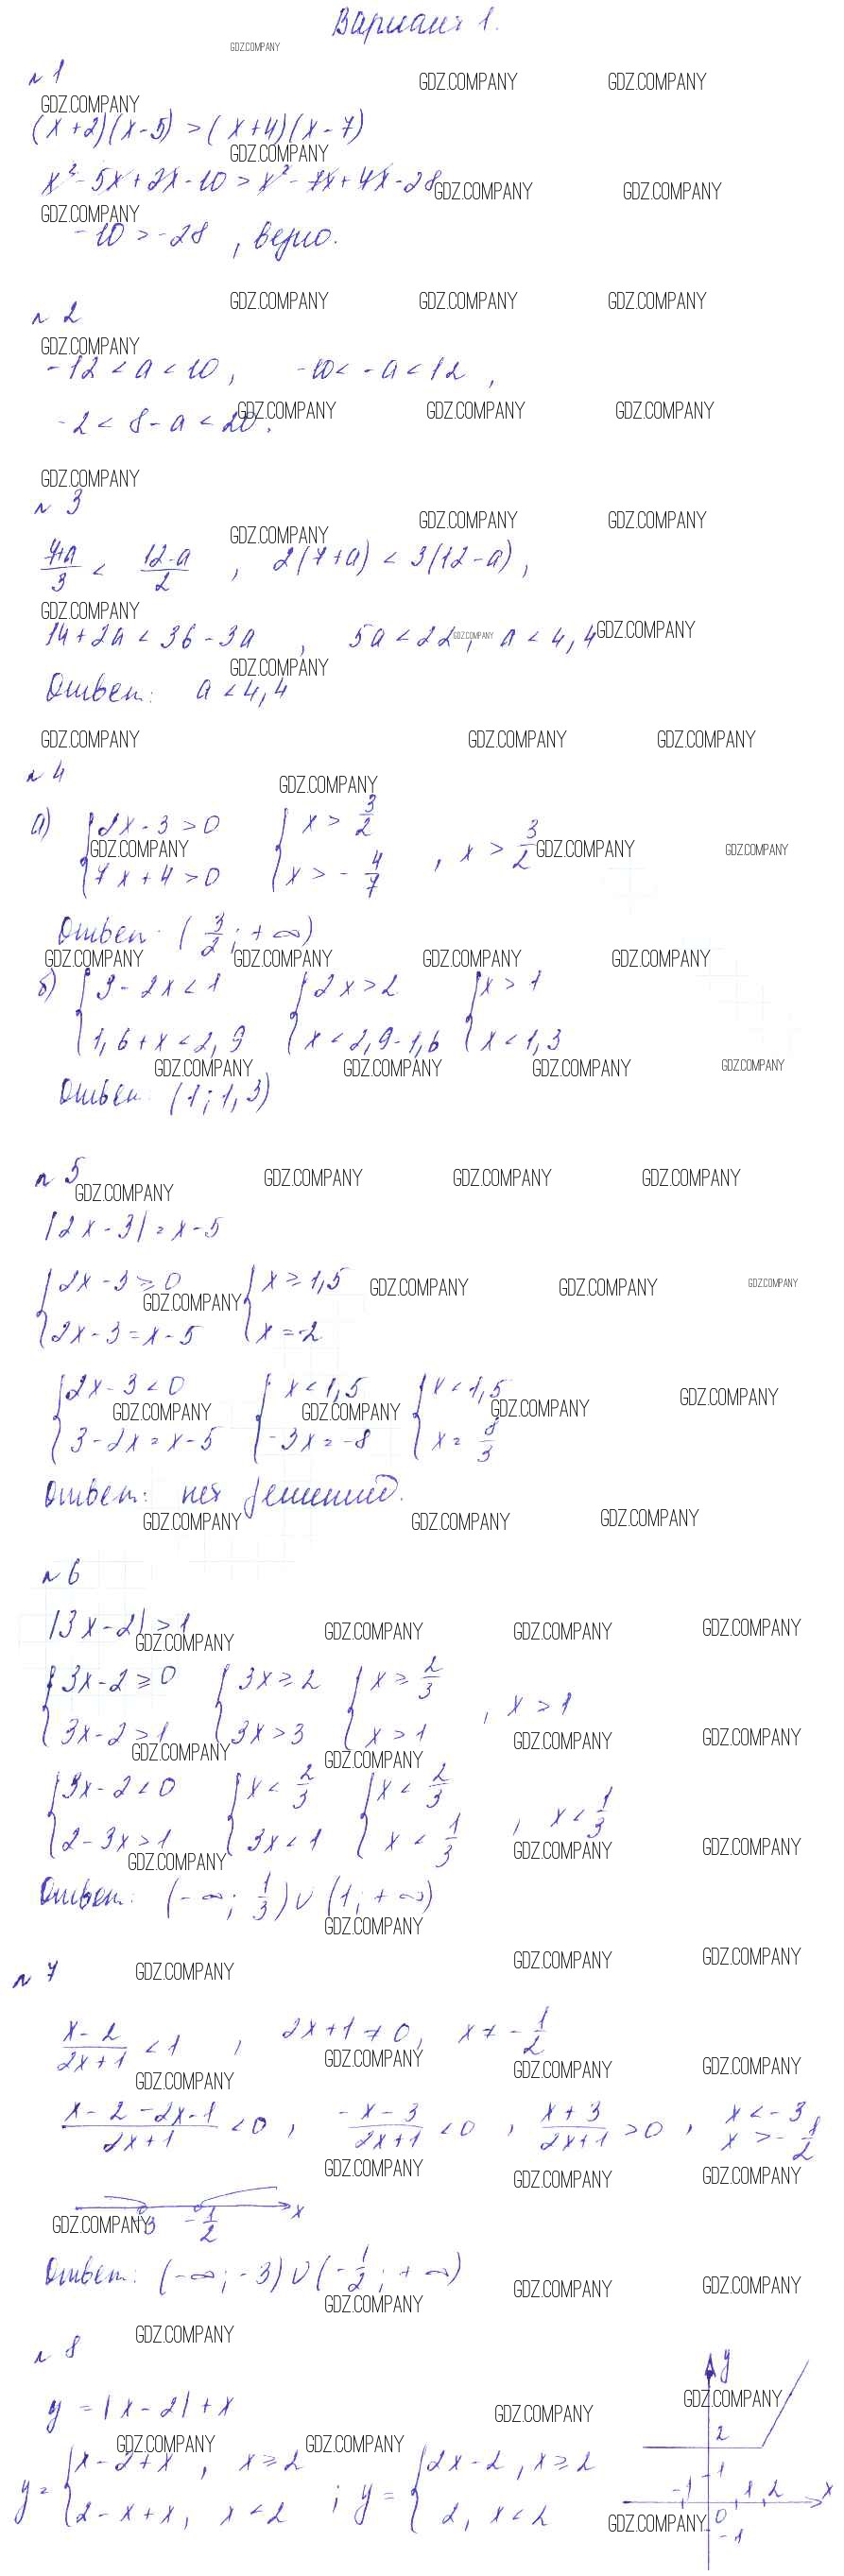 Вариант 1.
GDZ.COMPANY
№1
GDZ.COMPANY GDZ.COMPANY
GDZ.COMPANY
(x+2)(x-5) > (x+4)(x-7)
GDZ.COMPANY
x² - 5x + 2x - 10 > x² - 7x + 4x - 28
GDZ.COMPANY GDZ.COMPANY
GDZ.COMPANY
-10 > -28, верно.
GDZ.COMPANY GDZ.COMPANY GDZ.COMPANY
№2
GDZ.COMPANY
-12 < a < 10, -10 < -a < 12,
GDZ.COMPANY GDZ.COMPANY GDZ.COMPANY
-2 < 8 - a < 20.
GDZ.COMPANY
№3
GDZ.COMPANY GDZ.COMPANY
GDZ.COMPANY
(7+a)/3 < (12-a)/2, 2(7+a) < 3(12-a),
GDZ.COMPANY
14 + 2a < 36 - 3a, 5a < 22, a < 4,4
GDZ.COMPANY GDZ.COMPANY
GDZ.COMPANY
Ответ: a < 4,4
GDZ.COMPANY GDZ.COMPANY GDZ.COMPANY
№4
GDZ.COMPANY
а) {2x - 3 > 0 {x > 3/2
{7x + 4 > 0 {x > -4/7, x > 3/2
GDZ.COMPANY GDZ.COMPANY GDZ.COMPANY
Ответ: (3/2; +∞)
GDZ.COMPANY GDZ.COMPANY GDZ.COMPANY GDZ.COMPANY
б) {3 - 2x < 1 {2x > 2 {x > 1
{1,6 + x < 2,9 {x < 2,9 - 1,6 {x < 1,3
GDZ.COMPANY GDZ.COMPANY GDZ.COMPANY GDZ.COMPANY
Ответ: (1; 1,3)
№5
GDZ.COMPANY GDZ.COMPANY GDZ.COMPANY
GDZ.COMPANY
|2x - 3| = x - 5
{2x - 3 ≥ 0 {x ≥ 1,5
GDZ.COMPANY GDZ.COMPANY GDZ.COMPANY
GDZ.COMPANY
{2x - 3 = x - 5 {x = -2
{2x - 3 < 0 {x < 1,5 {x < 1,5
GDZ.COMPANY GDZ.COMPANY GDZ.COMPANY GDZ.COMPANY
{3 - 2x = x - 5 {-3x = -8 {x = 8/3
Ответ: нет решений.
GDZ.COMPANY GDZ.COMPANY GDZ.COMPANY
№6
|3x - 2| > 1
GDZ.COMPANY GDZ.COMPANY GDZ.COMPANY GDZ.COMPANY
{3x - 2 ≥ 0 {3x ≥ 2 {x ≥ 2/3
{3x - 2 > 1 {3x > 3 {x > 1, x > 1
GDZ.COMPANY GDZ.COMPANY GDZ.COMPANY GDZ.COMPANY
{3x - 2 < 0 {x < 2/3 {x < 2/3
{2 - 3x > 1 {3x < 1 {x < 1/3, x < 1/3
GDZ.COMPANY GDZ.COMPANY GDZ.COMPANY
Ответ: (-∞; 1/3) ∪ (1; +∞)
GDZ.COMPANY
№7
GDZ.COMPANY GDZ.COMPANY GDZ.COMPANY
(x-2)/(2x+1) < 1, 2x+1 ≠ 0, x ≠ -1/2
GDZ.COMPANY GDZ.COMPANY GDZ.COMPANY GDZ.COMPANY
(x-2-2x-1)/(2x+1) < 0, (-x-3)/(2x+1) < 0, (x+3)/(2x+1) > 0, x < -3
x > -1/2
GDZ.COMPANY GDZ.COMPANY GDZ.COMPANY
x
GDZ.COMPANY
-3 -1/2
Ответ: (-∞; -3) ∪ (-1/2; +∞)
GDZ.COMPANY GDZ.COMPANY GDZ.COMPANY
GDZ.COMPANY
№8
y = |x - 2| + x
GDZ.COMPANY
GDZ.COMPANY GDZ.COMPANY
y = {x - 2 + x, x ≥ 2 ; y = {2x - 2, x ≥ 2
{2 - x + x, x < 2 {2, x < 2
y
GDZ.COMPANY
2
1
-1 1 2 x
0
GDZ.COMPANY
-1